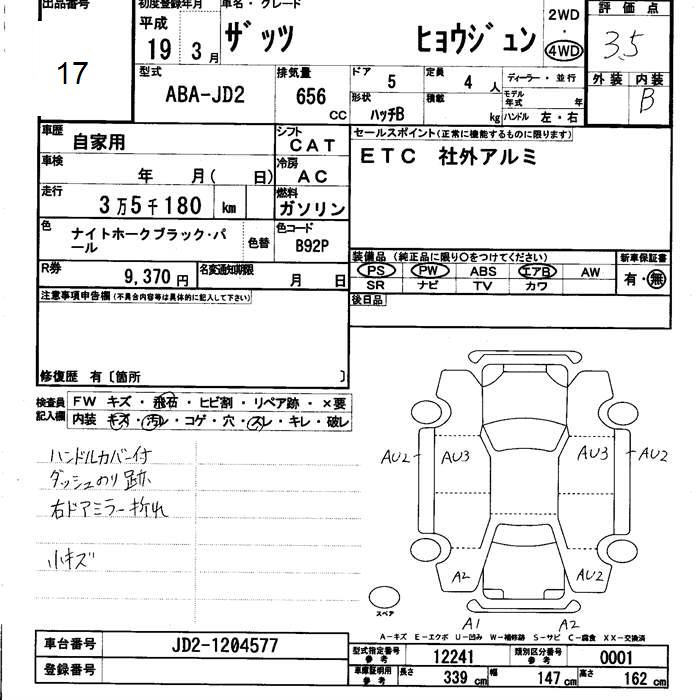 出品番号 初度登録年月 車名・グレード 評価点
平成 ザッツ ヒョウジュン 2WD 3.5
17 19 3月 4WD
型式 排気量 ドア 5 定員 4 人 ディーラー・並行 外装 内装
ABA-JD2 656 CC 形状 ハッチB 積載 kg モデル年式 年 B
ハンドル 左・右
車歴 自家用 シフト CAT セールスポイント(正常に機能するものに限ります)
車検 年 月( 日) 冷房 AC ETC 社外アルミ
走行 3万5千180 km 燃料 ガソリン
色 ナイトホークブラック・パール 色替 色コード B92P
装備品(純正品に限り○をつけてください) 新車保証書
PS PW ABS エアB AW 有・無
SR ナビ TV カワ
R券 9,370円 名変通知期限 月 日 後日品
注意事項申告欄(不具合内容等は具体的に記入して下さい)
修復歴 有〔箇所 〕
検査員記入欄 FW キズ・飛石・ヒビ割・リペア跡・×要
内装 キズ・汚レ・コゲ・穴・スレ・キレ・破レ
ハンドルカバー付
ダッシュのり跡
右ドアミラー折れ
小キズ
AU2 AU3 AU3 AU2
A2 AU2
スペア
A1 A2
A-キズ E-エクボ U-凹み W-補修跡 S-サビ C-腐食 XX-交換済
車台番号 JD2-1204577 型式指定番号 参考 12241 類別区分番号 参考 0001
登録番号 車庫証明用 参考 長さ 339 cm 幅 147 cm 高さ 162 cm